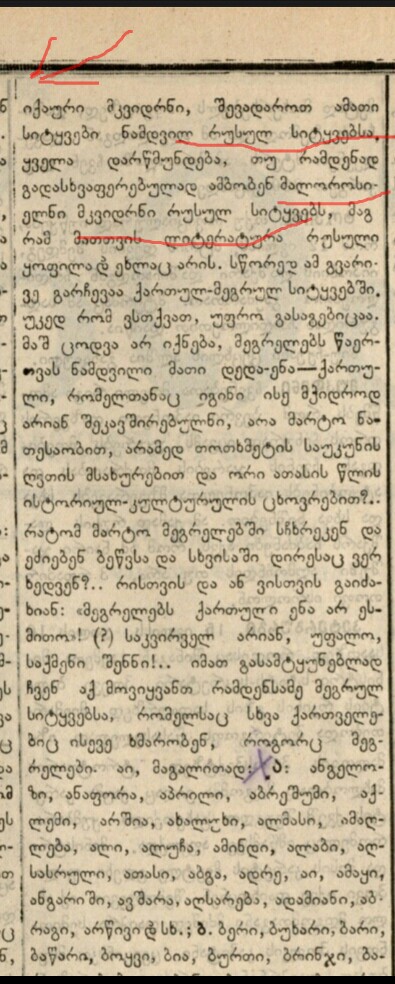 იქაური მკვიდრნი, შევადაროთ ამათი
სიტყვები ნამდვილ რუსულ სიტყვებსა,
ყველა დარწმუნდება, თუ რამდენად
გადასხვაფერებულად ამბობენ მალოროსი-
ელნი მკვიდრნი რუსულ სიტყვებს, მაგ
რამ მათთვის ლიტერატურა რუსული
ყოფილა და ეხლაც არის. სწორედ ამ გვარი-
ვე გარჩევაა ქართულ-მეგრულ სიტყვებში.
უკედ რომ ვსთქვათ, უფრო გასაგებიცაა.
მაშ ცოდვა არ იქნება, მეგრელებს წაერ-
თვას ნამდვილი მათი დედა-ენა—ქართუ-
ლი, რომელთანაც იგინი ისე მჭიდროდ
არიან შეკავშირებულნი, არა მარტო ნა-
თესაობით, არამედ თოთხმეტის საუკუნის
ღვთის მსახურებით და ორი ათასის წლის
ისტორიულ-კულტურულის ცხოვრებით?..
რატომ მარტო მეგრელებში სჩხრეკენ და
ეძიებენ ბეწვსა და სხვისაში დირესაც ვერ
ხედვენ?.. რისთვის და ან ვისთვის გაიძა-
ხიან: «მეგრელებს ქართული ენა არ ეს-
მითო»! (?) საკვირველ არიან, უფალო,
საქმენი შენნი!.. იმათ გასამტყუნებლად
ჩვენ აქ მოვიყვანთ რამდენსამე მეგრულ
სიტყვებსა, რომელსაც სხვა ქართველე-
ბიც ისევე ხმარობენ, როგორც მეგ-
რელები. აი, მაგალითად: ა: ანგელო-
ზი, ანაფორა, აპრილი, აბრეშუმი, აქ-
ლემი, არშია, ახალუხი, ალმასი, ამაღ-
ლება, ალი, ალუჩა, ამინდი, ალაბი, აღ-
სასრული, ათასი, აბგა, ადრე, აი, ამაყი,
ანგარიში, ავშარა, აღსარება, ადამიანი, აბ-
რაგი, არწივი და სხ.; ბ. ბერი, ბუხარი, ბარი,
ბაწარი, ბოყვი, ბია, ბურთი, ბრინჯი, ბა-